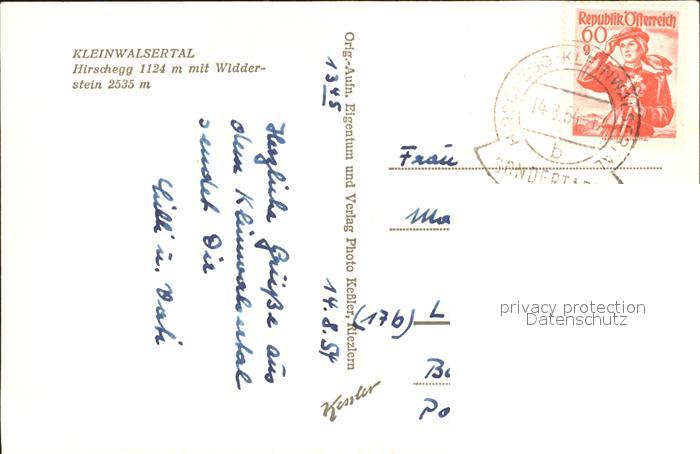 KLEINWALSERTAL
Hirschegg 1124 m mit Widder-
stein 2535 m
Herzliche Grüße aus
dem Kleinwalsertal
sendet Dir
u. Vati
1345
Orig.-Aufn. Eigentum und Verlag Photo Keßler, Riezlern
14.8.54
Kessler
Republik Österreich
60
g
14.8.54
b
SONDERTA
Frau
Ma
(17b) L
Be
Po
privacy protection
Datenschutz